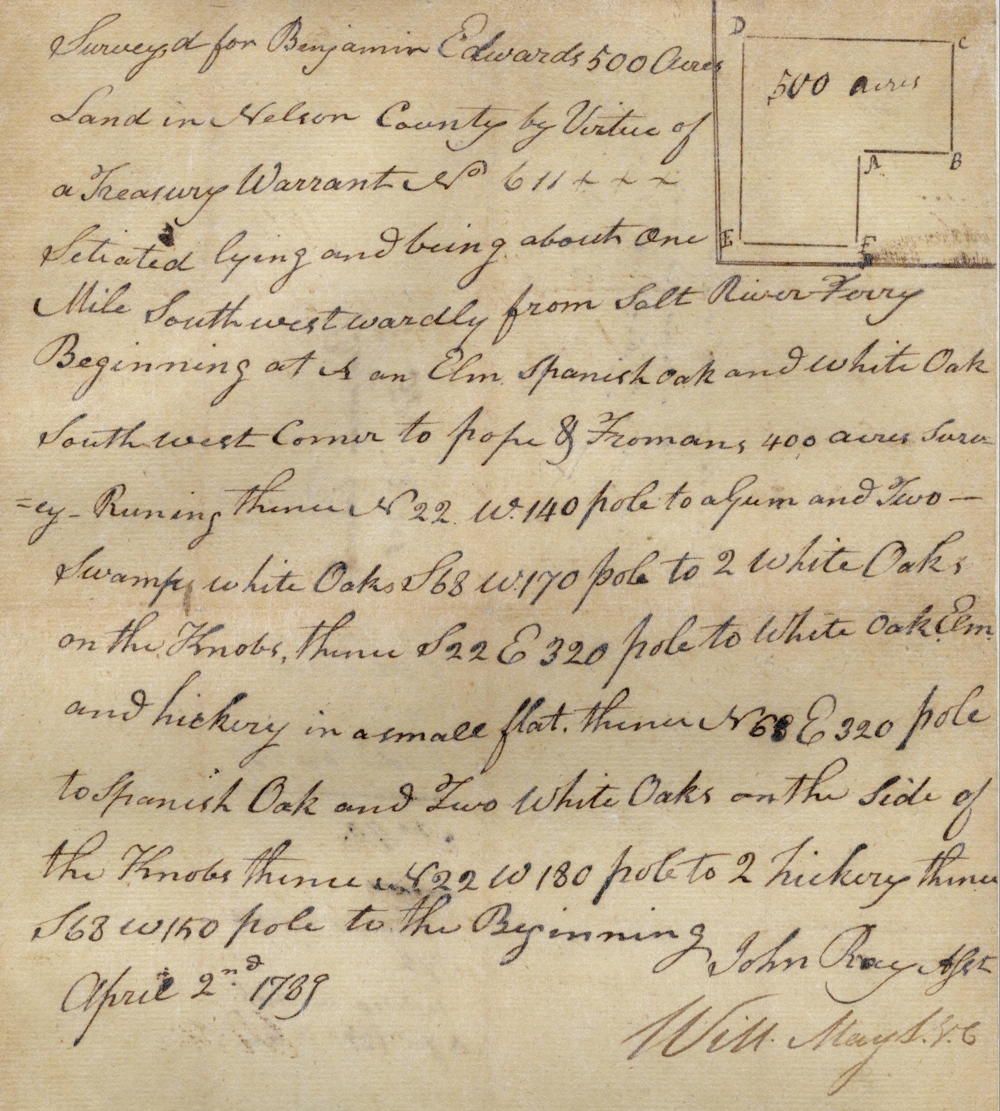 D
C
500 acres
A
B
E
F
Survey,d for Benjamin Edwards 500 Acres
Land in Nelson County by Virtue of
a Treasury Warrant No 611 + + +
Setiated lying and being about One
Mile Southwestwardly from Salt River Ferry
Beginning at A an Elm Spanish oak and White Oak
South west Corner to pope & Fromans 400 acres Surv=
=ey - Runing thence N 22 W. 140 pole to a Gum and Two —
Swamp, white Oaks S68 W. 170 pole to 2 White Oaks
on the Knobs, thence S22 E 320 pole to White Oak Elm
and hickery in a small flat. thence N 68 E 320 pole
to Spanish Oak and Two White Oaks on the Side of
the Knobs thence N22 W 180 pole to 2 hickery thence
S68 W 150 pole to the Beginning
John Ray Asst
April 2nd 1789
Will. May S. N. C